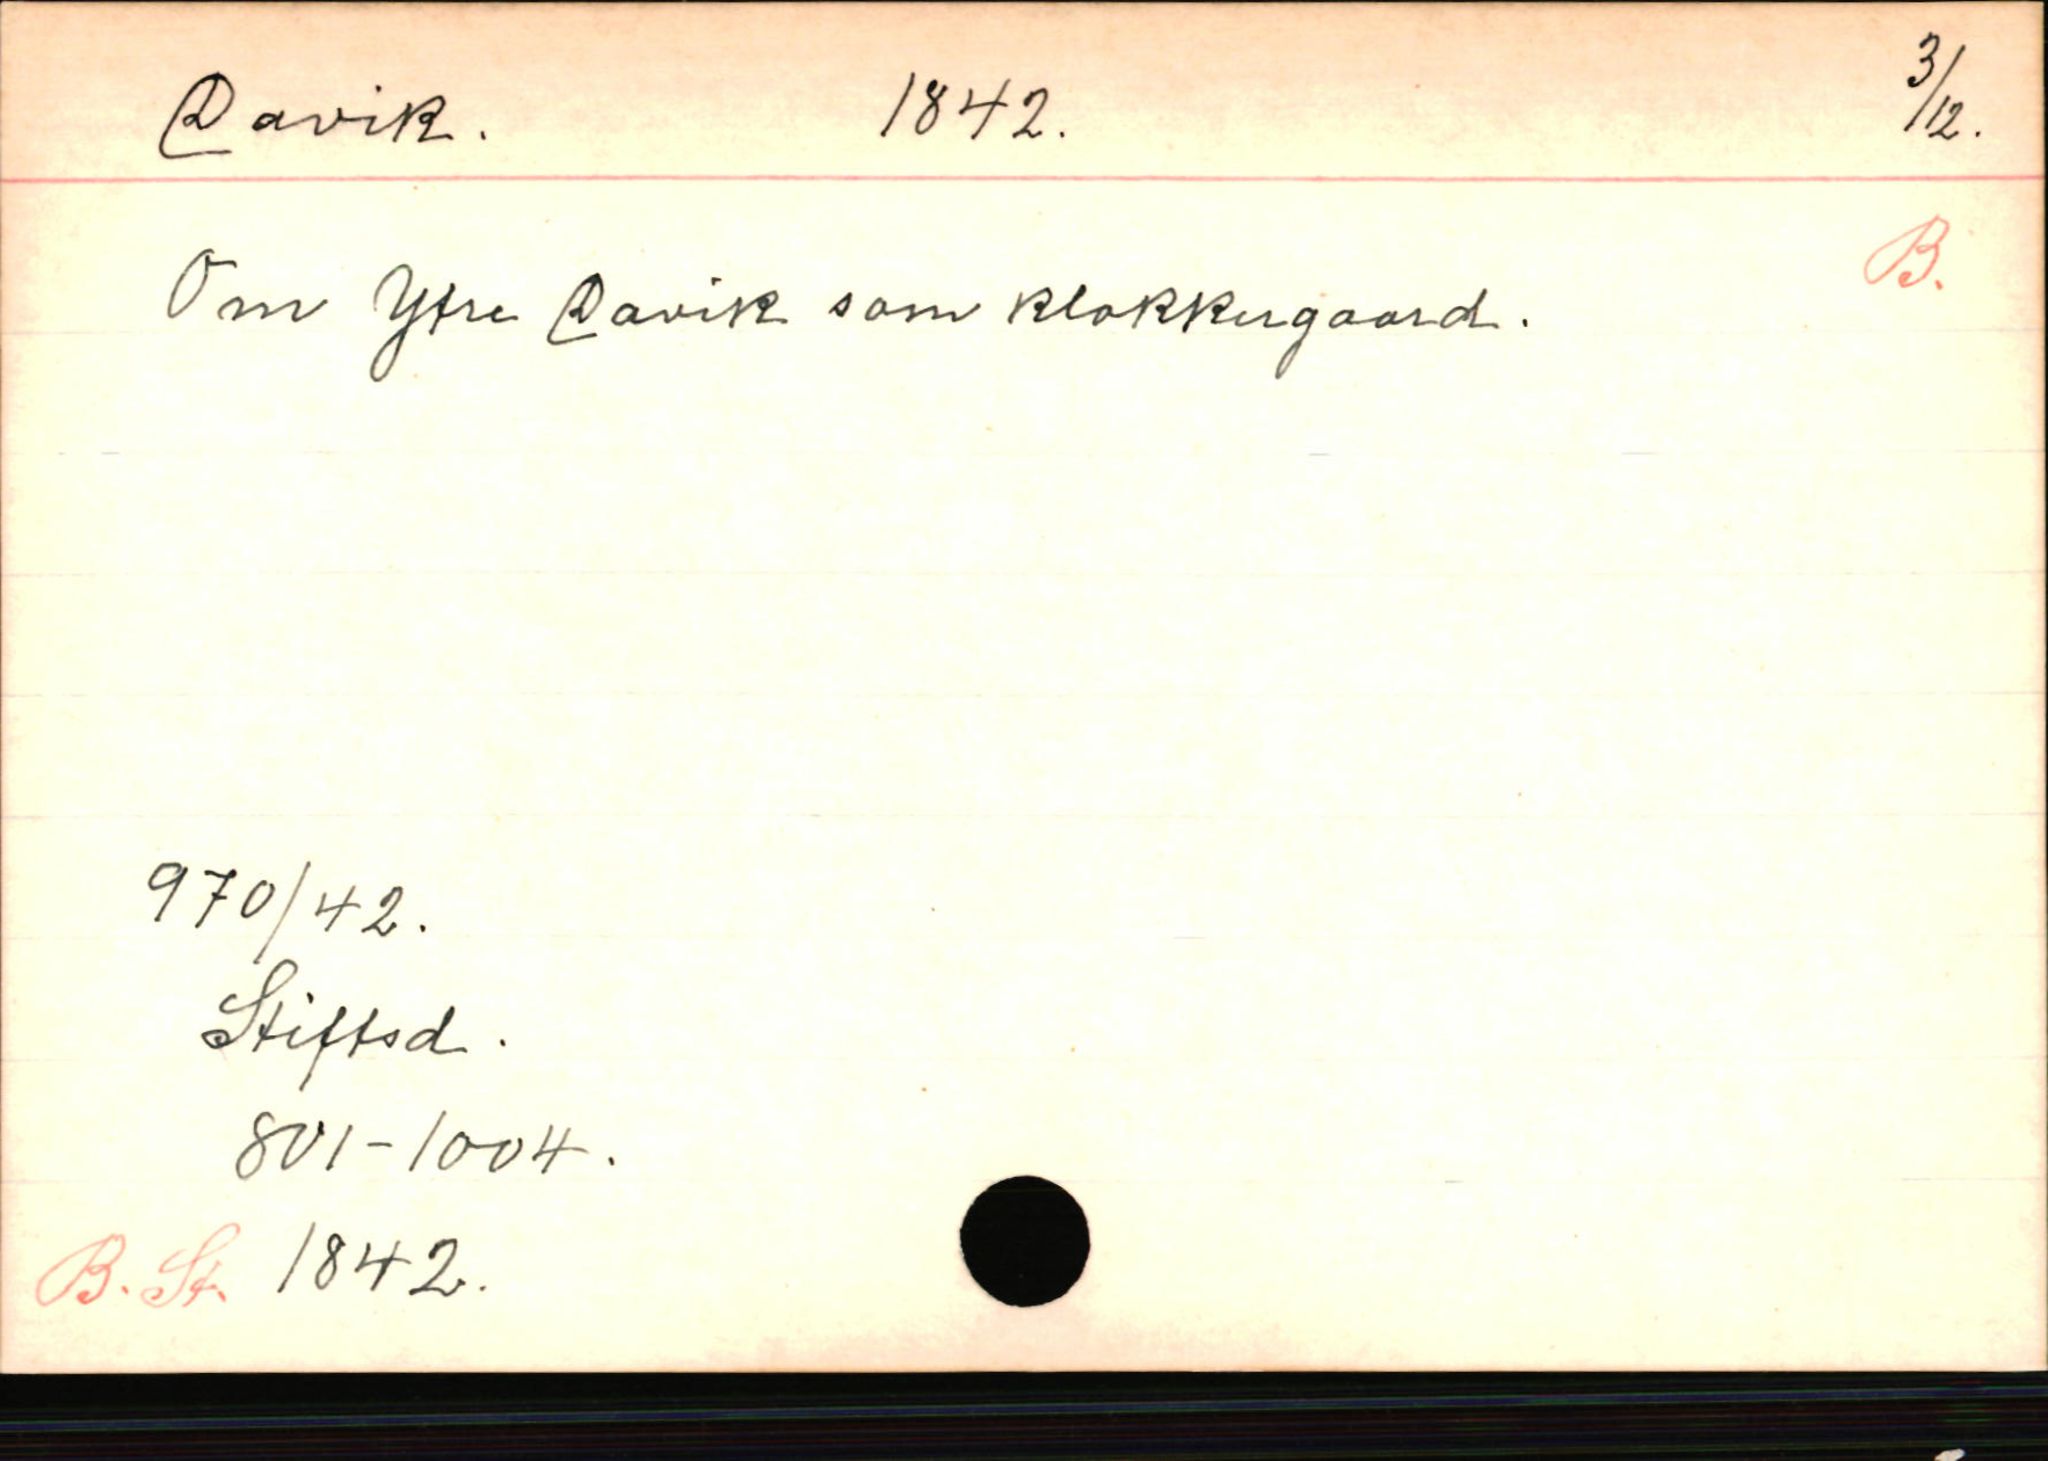 Davik. 1842. 3/12.
B.
Om Ytre Davik som klokkergaard.
970/42.
Stiftsd.
801-1004.
B. St. 1842.